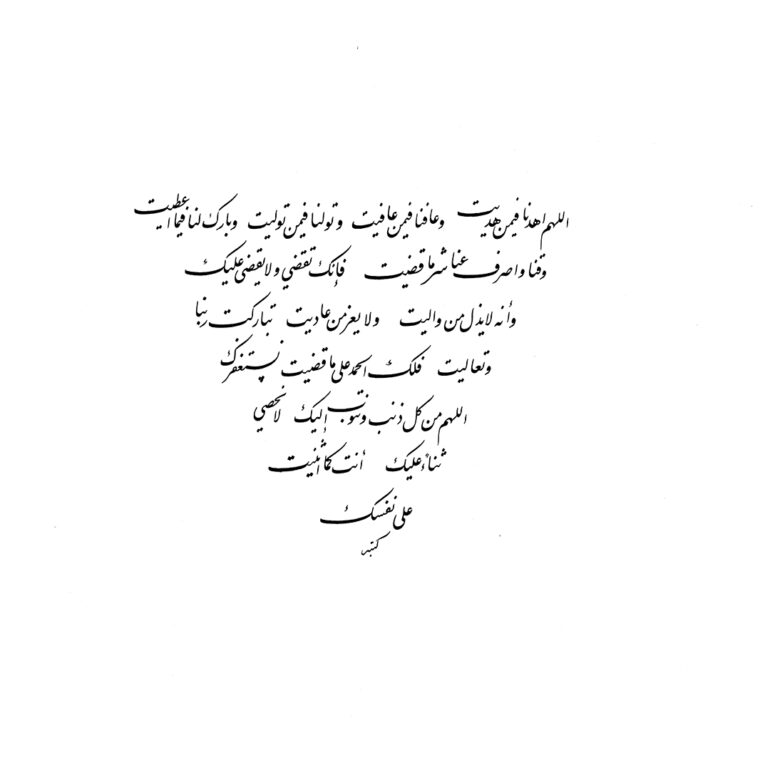 اللهم اهدنا فيمن هديت وعافنا فيمن عافيت وتولنا فيمن توليت وبارك لنا فيما اعطيت
وقنا واصرف عنا شر ما قضيت فإنك تقضي ولا يقضى عليك
وأنه لا يذل من واليت ولا يعز من عاديت تباركت ربنا
وتعاليت فلك الحمد على ما قضيت نستغفرك
اللهم من كل ذنب ونتوب إليك لا نحصي
ثناء عليك أنت كما أثنيت
على نفسك
كتبه